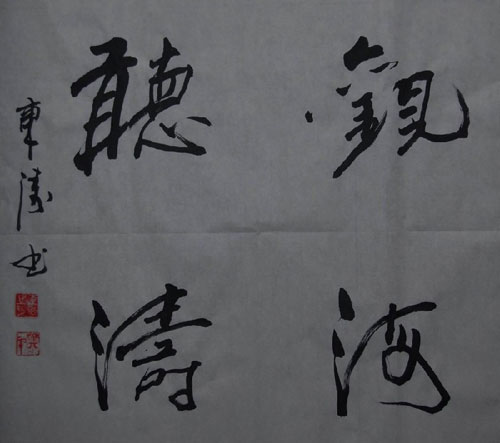 觀海
聽濤
東濤书